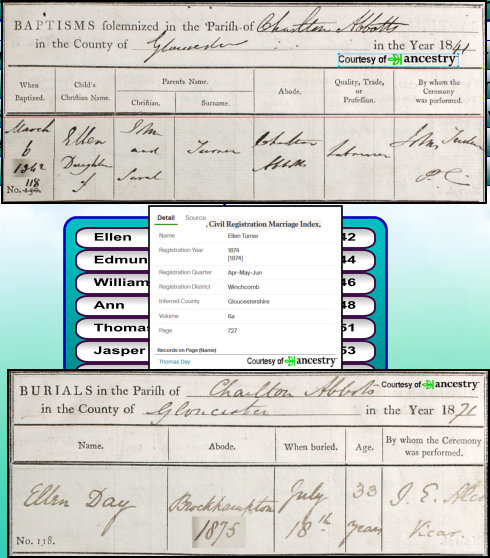 BAPTISMS solemnized in the Parish of Charlton Abbotts
in the County of Gloucester in the Year 1841
Courtesy of ancestry
When Baptized.
Child's Christian Name.
Parents Name.
Christian.
Surname.
Abode.
Quality, Trade, or Profession.
By whom the Ceremony was performed.
March
6
1842
118
No.
Ellen
Daughter
of
John
and
Sarah
Turner
Charlton
Abbotts
Labourer
John
P. C.
Ellen
Edmun
William
Ann
Thomas
Jasper
42
44
46
48
51
53
Detail Source
, Civil Registration Marriage Index,
Name Ellen Turner
Registration Year 1874
[1874]
Registration Quarter Apr-May-Jun
Registration District Winchcomb
Inferred County Gloucestershire
Volume 6a
Page 727
Records on Page (Name)
Thomas Day
Courtesy of ancestry
BURIALS in the Parish of Charlton Abbots
Courtesy of ancestry
in the County of Gloucester in the Year 1871
Name.
Abode.
When buried.
Age.
By whom the Ceremony was performed.
Ellen Day
No. 138.
Brockhampton
1875
July
18th
33
years
J. E.
Vicar.